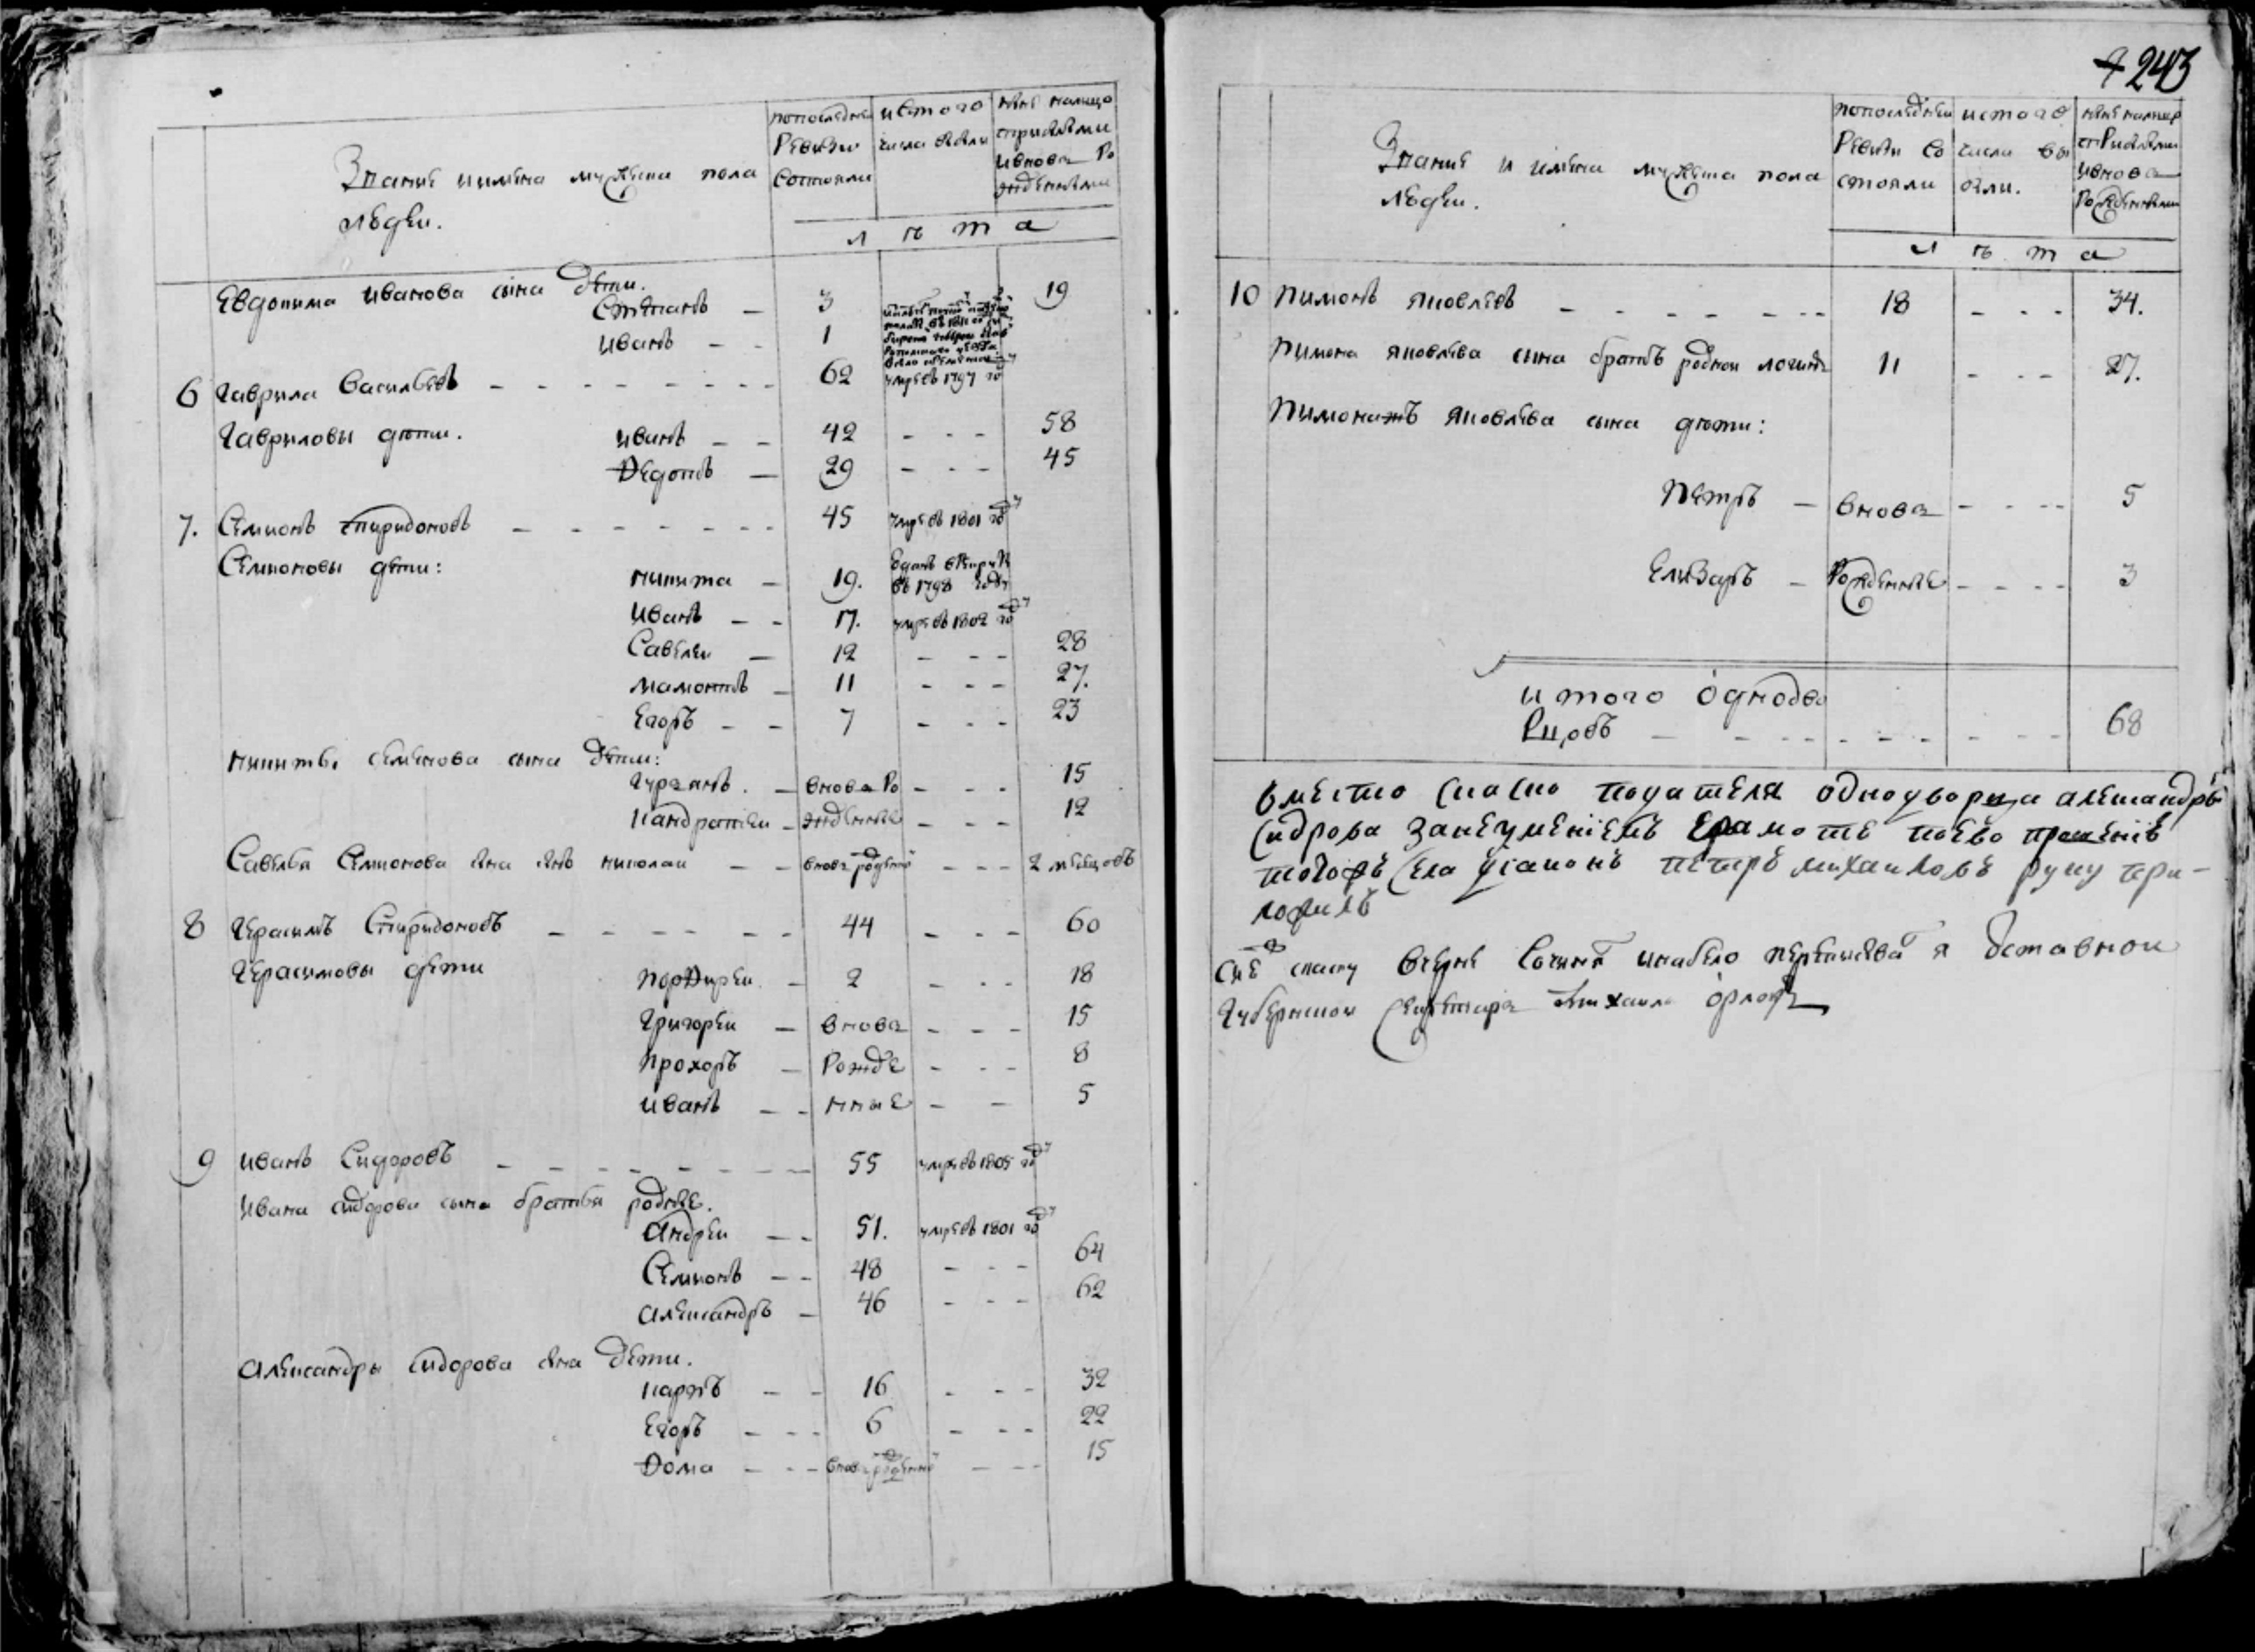 Звание иимена мужеска пола
людеи.
попоследнеи
Ревизии
Состояли
истого
числа выбыли
ныне налицо
сприбылыми
ивнова Ро
жденными
л ѣ т а
Евдокима иванова сына дети.
Степанъ — 3 19
иванъ — — 1
6 Гаврила Васильевъ — — — — — — — — 62 умре въ 1797 году
Гавриловы дѣти. иванъ — — 42 - - - 58
Ѳедотъ — 29 - - - 45
7. Семионъ спиридоновъ — — — — — — — 45 умре въ 1801 году
Семионовы дети: никита — 19. Оданъ врекруты
въ 1798 году
иванъ — — 17. умре въ 1802 году
Савелеи — 12 - - - 28
мамонтъ — 11 - - - 27.
Егоръ — — 7 - - - 23
никиты семенова сына дети:
Гурьянъ. — внова Ро - - - 15
кандратеи — жденные - - - 12
Савелья Семионова сна снъ николаи — — вновь рожденной - - - 2 месецовъ
8 Герасимъ Спиридоновъ — — — — — — 44 - - - 60
Герасимовы дети порѲиреи. — 2 - - - 18
Григореи — внова - - - 15
прохоръ — Рожде - - - 8
иванъ — — нные - - 5
9 иванъ Сидоровъ — — — — — — — 55 умре въ 1805 году
ивана сидорова сына братья родные.
Андреи — — 51. умре въ 1801 году
Семионъ — — 48 - - - 64
александръ — 46 - - - 62
александры сидорова сна дети.
карпъ — — 16 - - - 32
Егоръ — — — 6 - - - 22
Ѳома — — — вновь рожденной - - - 15
243
Звание и имена мужеска пола
людеи.
попоследнеи
Ревизи со
стояли
истого
числа вы
были.
ныне налицо
сприбылыми
ивнова
Рожденными
л ѣ т а
10 пимонъ яковлевъ — — — — — — — 18 - - - 34.
пимона яковлева сына братъ роднои логинъ 11 - - - 27.
пимона яковлева сына дѣти:
петръ — внова - - - 5
Елизаръ — Рожденные - - - 3
и того однодво
рцовъ — — — — — — — — — 68
вместо скаско подателя однодворца александры
Сидрова занеумениемъ грамоте поево прошению
тогожъ села петръ михаиловъ руку при-
ложилъ
сию скаску вчерне Сочинялъ инабело переписывалъ я Отставнои
Губернскои секретарь михаила орловъ